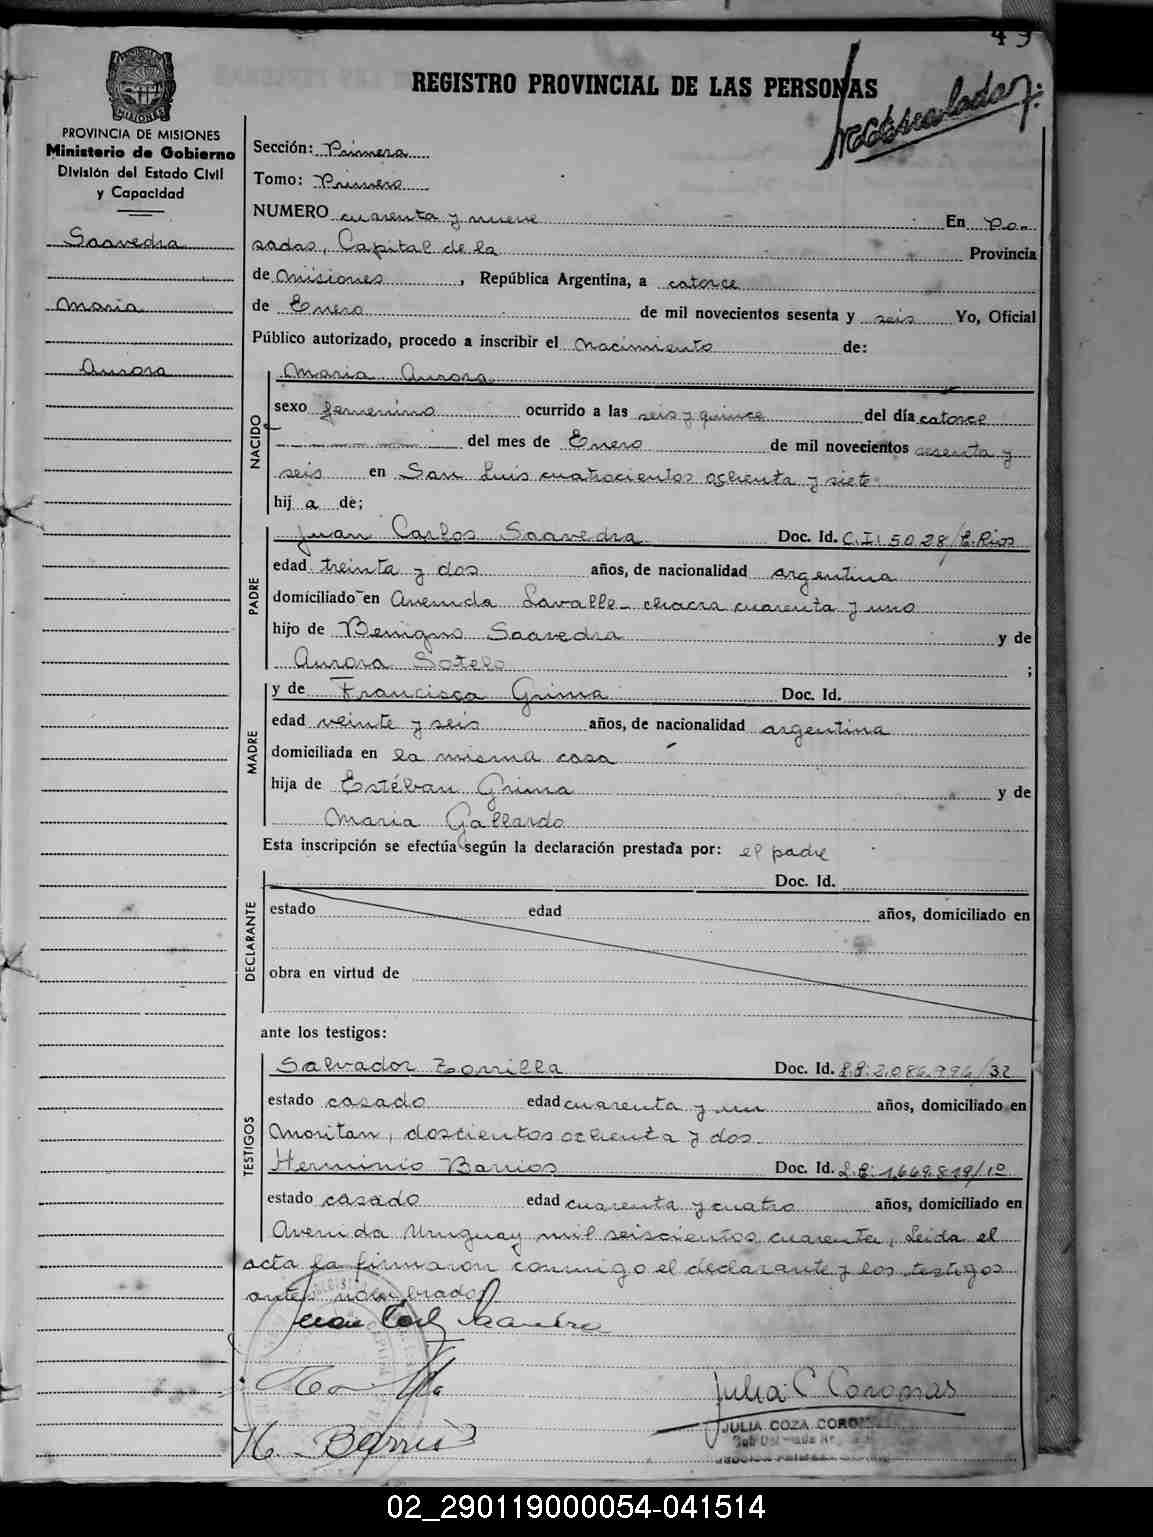 49
REGISTRO PROVINCIAL DE LAS PERSONAS
PROVINCIA DE MISIONES
Ministerio de Gobierno
División del Estado Civil
y Capacidad
Saavedra
Maria
Aurora
Sección: Primera
Tomo: Primero
NUMERO cuarenta y nueve En Po-
sadas, Capital de la Provincia
de Misiones, República Argentina, a catorce
de Enero de mil novecientos sesenta y seis Yo, Oficial
Público autorizado, procedo a inscribir el nacimiento de:
Maria Aurora
NACIDO
sexo femenino ocurrido a las seis y quince del día catorce
del mes de Enero de mil novecientos sesenta y
seis en San Luis cuatrocientos ochenta y siete
hij a de;
PADRE
Juan Carlos Saavedra Doc. Id. C.I: 5.028/E.Rios
edad treinta y dos años, de nacionalidad argentina
domiciliado en Avenida Lavalle - chacra cuarenta y uno
hijo de Benigno Saavedra y de
Aurora Sotelo ;
MADRE
y de Francisca Grima Doc. Id.
edad veinte y seis años, de nacionalidad argentina
domiciliada en la misma casa
hija de Estéban Grima y de
Maria Gallardo
Esta inscripción se efectúa según la declaración prestada por: el padre
DECLARANTE
Doc. Id.
estado edad años, domiciliado en
obra en virtud de
ante los testigos:
TESTIGOS
Salvador Zorrilla Doc. Id. 2.086.996/32
estado casado edad cuarenta y un años, domiciliado en
Moritan, doscientos ochenta y dos
Herminio Barrios Doc. Id. L.E: 1.669.819/1º
estado casado edad cuarenta y cuatro años, domiciliado en
Avenida Uruguay mil seiscientos cuarenta, Leida el
acta la firmaron conmigo el declarante y los testigos
antes nombrados
Juan Carlos Saavedra
H. Barrios
Julia C. Coronas
JULIA COZA CORONAS
02_290119000054-041514